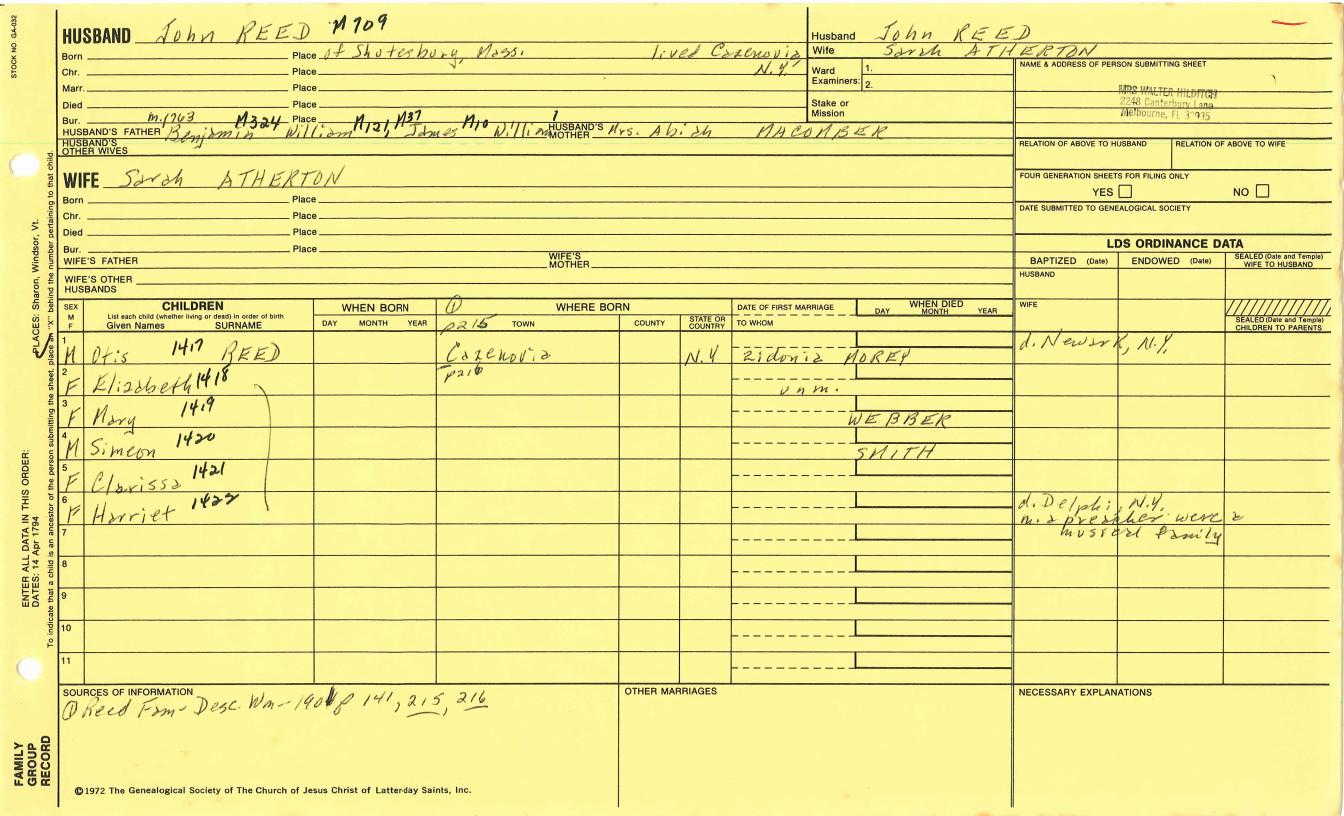 STOCK NO. GA-032
HUSBAND John REED M709
Born Place of Shutesbury, Mass. lived Cazenovia,
Chr. Place N.Y.
Marr. Place
Died Place
Bur. Place
m. 1763 M324 M121 M37 M10 1
HUSBAND'S FATHER Benjamin William, James William HUSBAND'S MOTHER Mrs. Abiah MACOMBER
HUSBAND'S OTHER WIVES
WIFE Sarah ATHERTON
Born Place
Chr. Place
Died Place
Bur. Place
WIFE'S FATHER WIFE'S MOTHER
WIFE'S OTHER HUSBANDS
Husband John REED
Wife Sarah ATHERTON
Ward Examiners: 1. 2.
Stake or Mission
NAME & ADDRESS OF PERSON SUBMITTING SHEET
MRS WALTER HILDITCH
2248 Canterbury Lane
Melbourne, FL
RELATION OF ABOVE TO HUSBAND RELATION OF ABOVE TO WIFE
FOUR GENERATION SHEETS FOR FILING ONLY
YES NO
DATE SUBMITTED TO GENEALOGICAL SOCIETY
LDS ORDINANCE DATA
BAPTIZED (Date) ENDOWED (Date) SEALED (Date and Temple) WIFE TO HUSBAND
HUSBAND
WIFE
SEALED (Date and Temple) CHILDREN TO PARENTS
SEX M F
CHILDREN
List each child (whether living or dead) in order of birth
Given Names SURNAME
WHEN BORN
DAY MONTH YEAR
① WHERE BORN
p215 TOWN COUNTY STATE OR COUNTRY
DATE OF FIRST MARRIAGE
TO WHOM
WHEN DIED
DAY MONTH YEAR
1 M Otis 1417 REED Cazenovia N.Y Zidonia MOREY d. Newark, N.Y.
p216
2 F Elizabeth 1418 unm.
3 F Mary 1419 WEBBER
4 M Simeon 1420 SMITH
5 F Clarissa 1421
6 F Harriet 1422 d. Delphi, N.Y.
m. a preacher were a
musical family
7
8
9
10
11
SOURCES OF INFORMATION
① Reed Fam- Desc. Wm- 1901 p 141, 215, 216
OTHER MARRIAGES
NECESSARY EXPLANATIONS
©1972 The Genealogical Society of The Church of Jesus Christ of Latter-day Saints, Inc.
FAMILY
GROUP
RECORD
ENTER ALL DATA IN THIS ORDER:
DATES: 14 Apr 1794
PLACES: Sharon, Windsor, Vt.
To indicate that a child is an ancestor of the person submitting the sheet, place an "X" behind the number pertaining to that child.